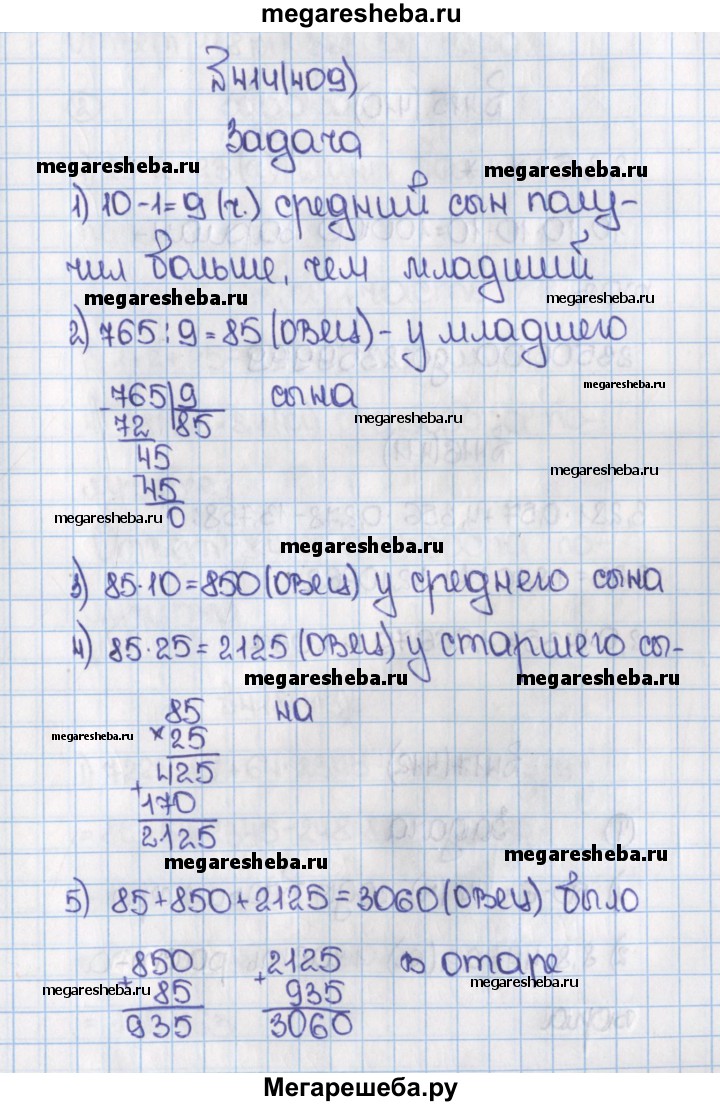 megaresheba.ru
№414(409)
Задача
megaresheba.ru
megaresheba.ru
1) 10-1=9 (ч.) средний сын полу-
чил больше, чем младший
megaresheba.ru
megaresheba.ru
2) 765:9=85 (овец) - у младшего
megaresheba.ru
765|9 сына
72 |85
megaresheba.ru
45
megaresheba.ru
45
megaresheba.ru
0
megaresheba.ru
3) 85·10=850 (овец) у среднего сына
4) 85·25=2125 (овец) у старшего сы-
megaresheba.ru
megaresheba.ru
85 на
megaresheba.ru
× 25
425
+
170
2125
megaresheba.ru
megaresheba.ru
5) 85+850+2125=3060 (овец) было
850 2125 в отаре
+ 85 + 935
megaresheba.ru
megaresheba.ru
935 3060
Мегарешеба.ру